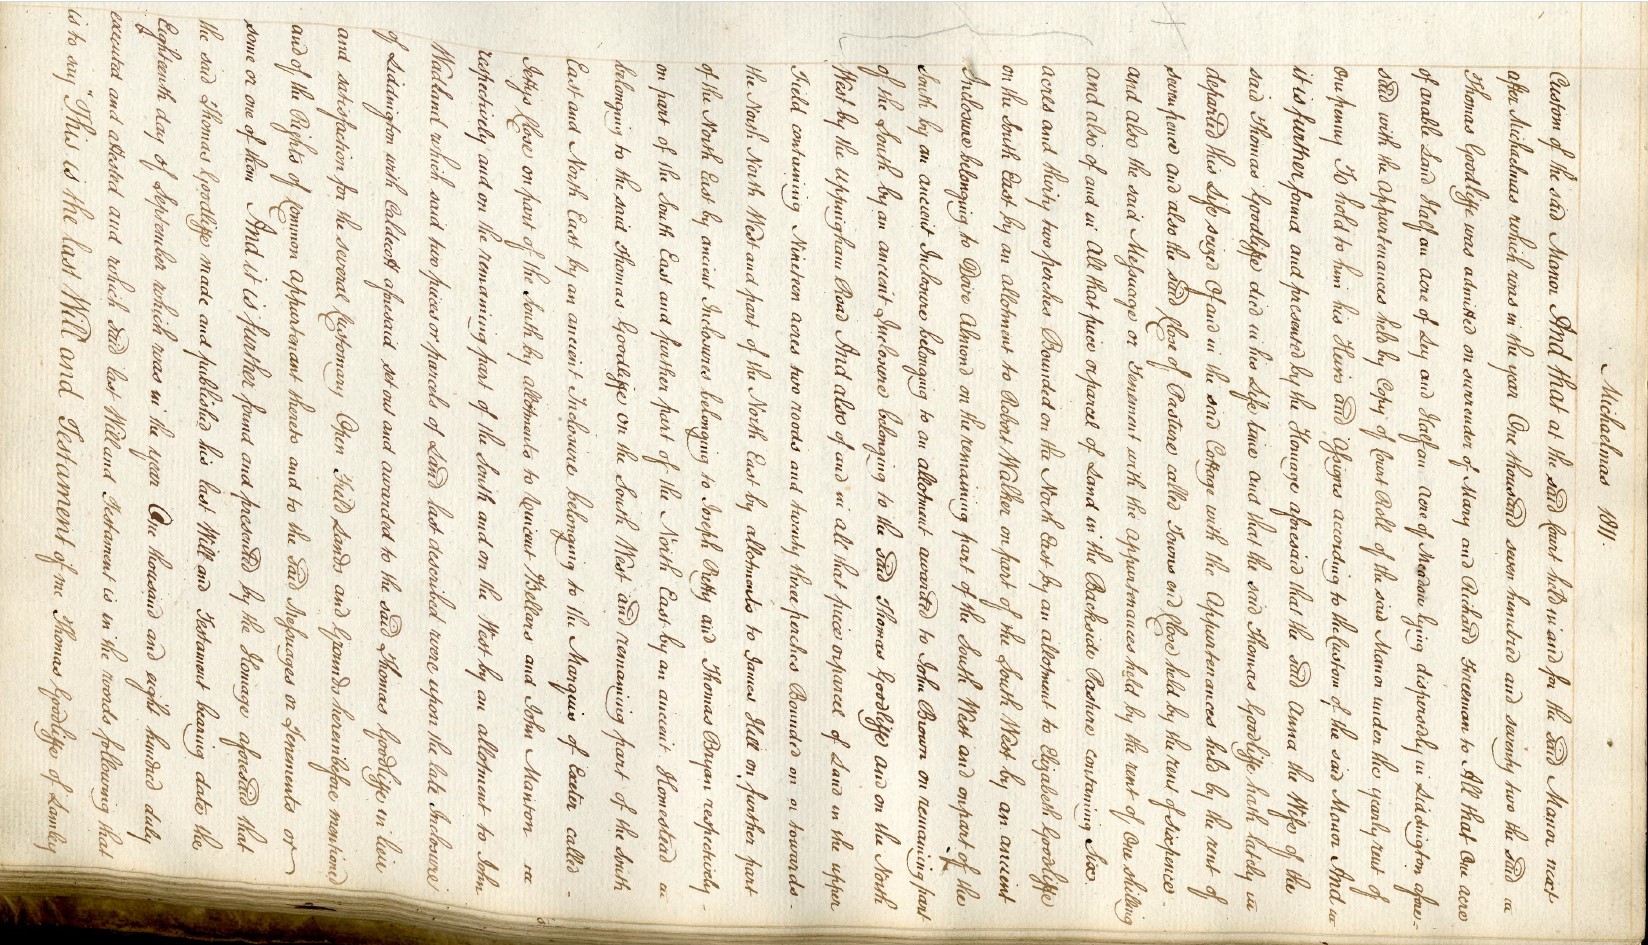 Michaelmas 1811.
Custom of the said Manor And that at the said Court held in and for the said Manor next
after Michaelmas which was in the year One thousand seven hundred and seventy two the said
Thomas Goodliffe was admitted on surrender of Mary and Richard Freeman to All that One acre
of arable Land Half an acre of Ley and Half an acre of Meadow lying dispersedly in Liddington afore-
said with the appurtenances held by Copy of Court Roll of the said Manor under the yearly rent of
One penny To hold to him his Heirs and Assigns according to the Custom of the said Manor And
it is further found and presented by the Homage aforesaid that the said Anna the Wife of the
said Thomas Goodliffe died in his Life time and that the said Thomas Goodliffe hath lately
departed this Life seized Of and in the said Cottage with the Appurtenances held by the rent of
some pence and also the said Close of Pasture called Towns end Close held by the rent of sixpence -
and also the said Messuage or Tenement with the appurtenances held by the rent of One shilling
and also of and in All that piece or parcel of Land in the Backside Pasture containing Six
acres and thirty two perches Bounded on the North East by an allotment to Elizabeth Goodliffe
on the South East by an allotment to Robert Walker on part of the South West by an ancient
Inclosure belonging to Almond on the remaining part of the South West and on part of the
South by an ancient Inclosure belonging to an allotment awarded to John Brown on remaining part
of the South by an ancient Inclosure belonging to the said Thomas Goodliffe and on the North
West by the Uppingham Road And also of and in all that piece or parcel of Land in the upper
Field containing Nineteen acres two roods and twenty three perches Bounded on or towards -
the North North West and part of the North East by allotments to James Hill on further part
of the North East by ancient Inclosures belonging to Joseph Pretty and Thomas Bryan respectively -
on part of the South East and further part of the North East by an ancient Homestead
belonging to the said Thomas Goodliffe on the South West and remaining part of the South
East and North East by an ancient Inclosure belonging to the Marquis of Exeter called -
Close on part of the South by allotments to Vincent Bellars and John Manton
respectively and on the remaining part of the South and on the West by an allotment to John
Wadland which said two pieces or parcels of Land last described were upon the late Inclosure
of Liddington with Caldecott aforesaid set out and awarded to the said Thomas Goodliffe in lieu
and satisfaction for the several Customary Open Field Lands and Grounds hereinbefore mentioned
and of the Rights of Common appurtenant thereto and to the said Messuages or Tenements or
some or one of them And it is further found and presented by the Homage aforesaid that
the said Thomas Goodliffe made and published his last Will and Testament bearing date the
Eighteenth day of September which was in the year One thousand and eight hundred duly
executed and attested and which said last Will and Testament is in the words following that
is to say "This is the last Will and Testament of me Thomas Goodliffe of